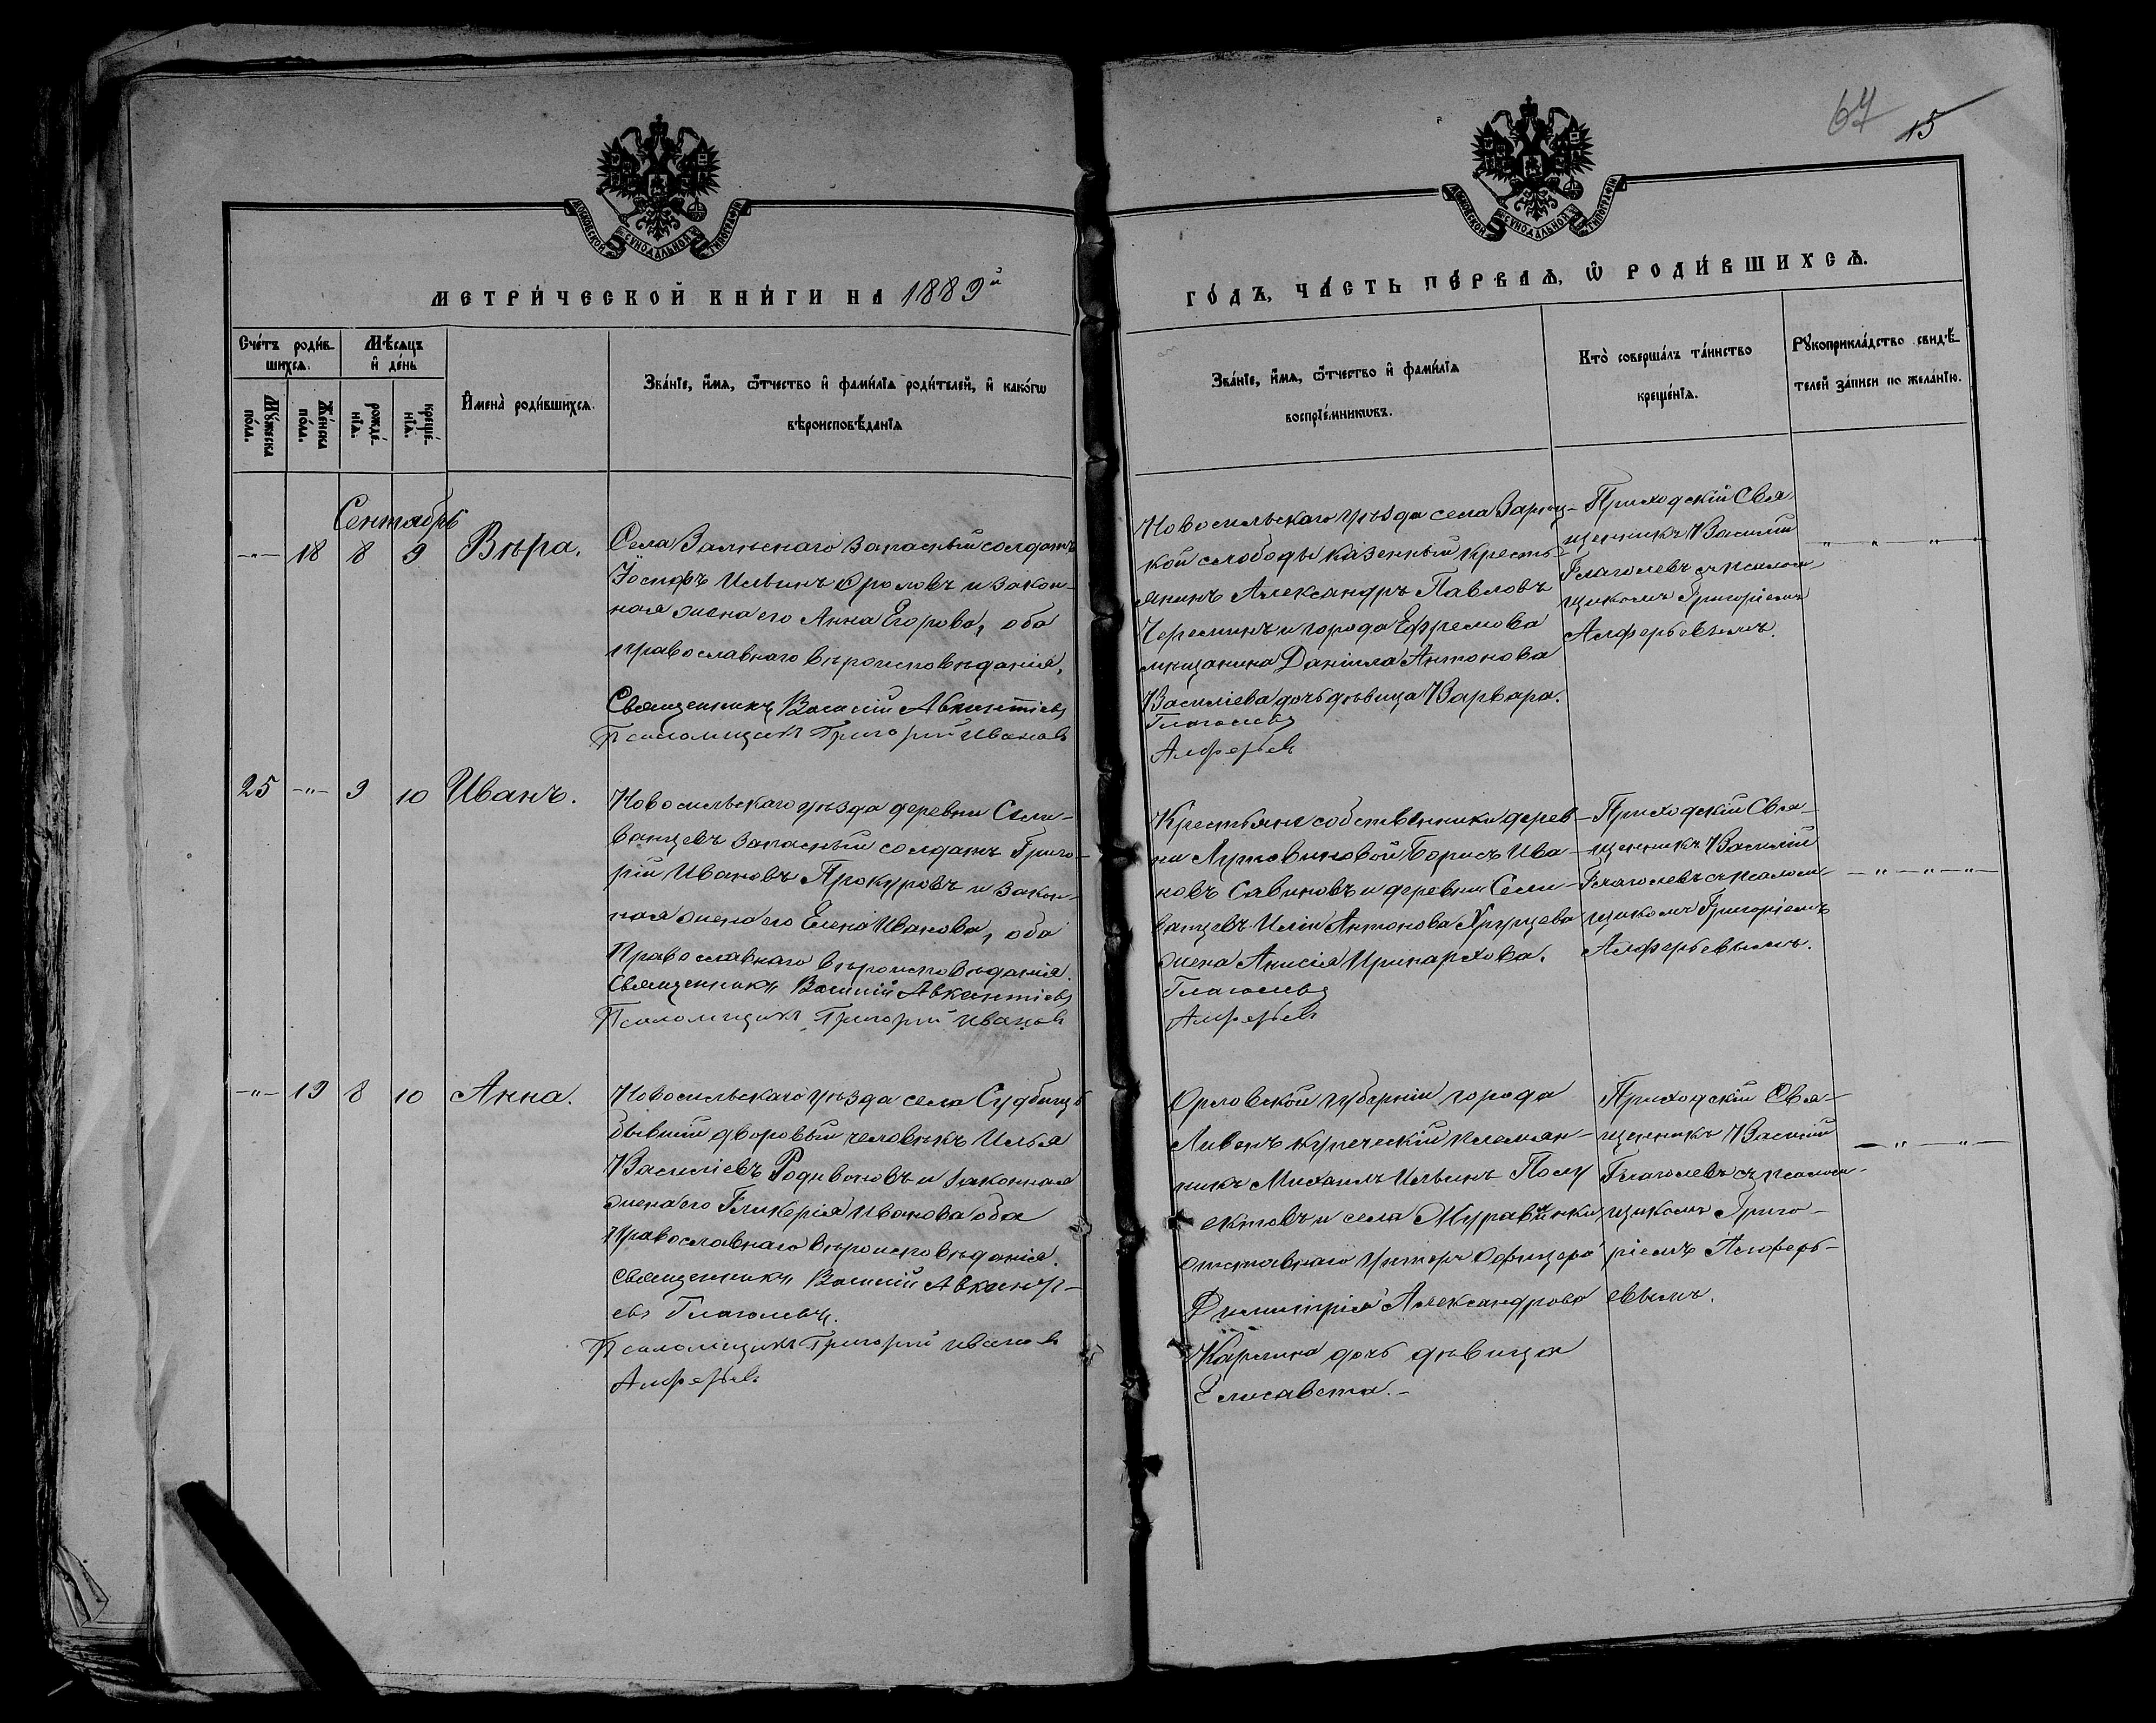 67 15
МОСКОВСКОЙ СУНОДАЛЬНОЙ ТИПОГРАФІИ
МОСКОВСКОЙ СУНОДАЛЬНОЙ ТИПОГРАФІИ
МЕТРИ́ЧЕСКОЙ КНИ́ГИ НА 1889й
ГО́ДЪ, ЧА́СТЬ ПЕ́РВАѦ, Ѡ҆ РОДИ́ВШИХСѦ.
Сче́тъ роди́в-
шихсѧ.
Мѣ́сѧцъ
и҆ де́нь
Мꙋ́жеска по́ла.
Же́нска по́ла.
рожде́-нїѧ.
креще́-нїѧ.
И҆мена̀ роди́вшихсѧ.
Зва́нїе, и҆́мѧ, ѻ҆́тчество и҆ фами́лїѧ роди́телей, и҆ како́гѡ
вѣроисповѣ́данїѧ
Зва́нїе, и҆́мѧ, ѻ҆́тчество и҆ фами́лїѧ
воспрїе́мникѡвъ.
Кто̀ соверша́лъ та́инство
креще́нїѧ.
Рꙋкоприкла́дство свидѣ́-
телей за́писи по жела́нїю.
Сентябрь
-„- 18 8 9 Вѣра.
Села Залѣскаго запасный солдатъ
Іосифъ Ильинъ Фроловъ и закон-
ная жена его Анна Егорова, оба
православнаго вѣроисповѣданія,
Священникъ Василій Авксентіевъ
Псаломщикъ Григорій Ивановъ
Новосильскаго уѣзда села
кой слободы казенный кресть-
янинъ Александръ Павловъ
и города Ефремова
мѣщанина Даніила Антонова
Василіева дочь дѣвица Варвара.
Глаголевъ
Алферьевъ
Приходскій Свя-
щенникъ Василій
Глаголевъ съ псалом-
щикомъ Григоріемъ
Алферьевымъ.
25 -„- 9 10 Иванъ.
Новосильскаго уѣзда деревни Сели-
ванцевъ запасный солдатъ Григо-
рій Ивановъ Прокуровъ и закон-
ная жена его Елена Иванова, оба
Православнаго вѣроисповѣданія.
Священникъ Василій Авксентіевъ
Псаломщикъ Григорій Ивановъ
Крестьяне собственники дерев-
ни Лутовиновой Борисъ Ива-
новъ Савиновъ и деревни Сели-
ванцевъ Иліи Антонова
жена Анисія Иринархова.
Глаголевъ
Алферьевъ
Приходскій Свя-
щенникъ Василій
Глаголевъ съ псалом-
щикомъ Григоріемъ
Алферьевымъ.
-„- 19 8 10 Анна.
Новосильскаго уѣзда села Судбищъ
бывшій дворовый человѣкъ Илья
Василіевъ Родивоновъ и законная
жена его Гликерія Иванова оба
православнаго вѣроисповѣданія.
Священникъ Василій Авксентi-
евъ Глаголевъ.
Псаломщикъ Григорій Ивановъ
Алферьевъ
Орловской губерніи города
Ливенъ купеческій племян-
никъ Михаилъ Ильинъ Полу
ектовъ и села Муравинки
отставнаго Унтеръ Офицера
Димитрія Александрова
Карпина дочь дѣвица
Елисавета.-
Приходскій Свя-
щенникъ Василій
Глаголевъ съ псалом-
щикомъ Григо-
ріемъ Алферь-
евымъ.